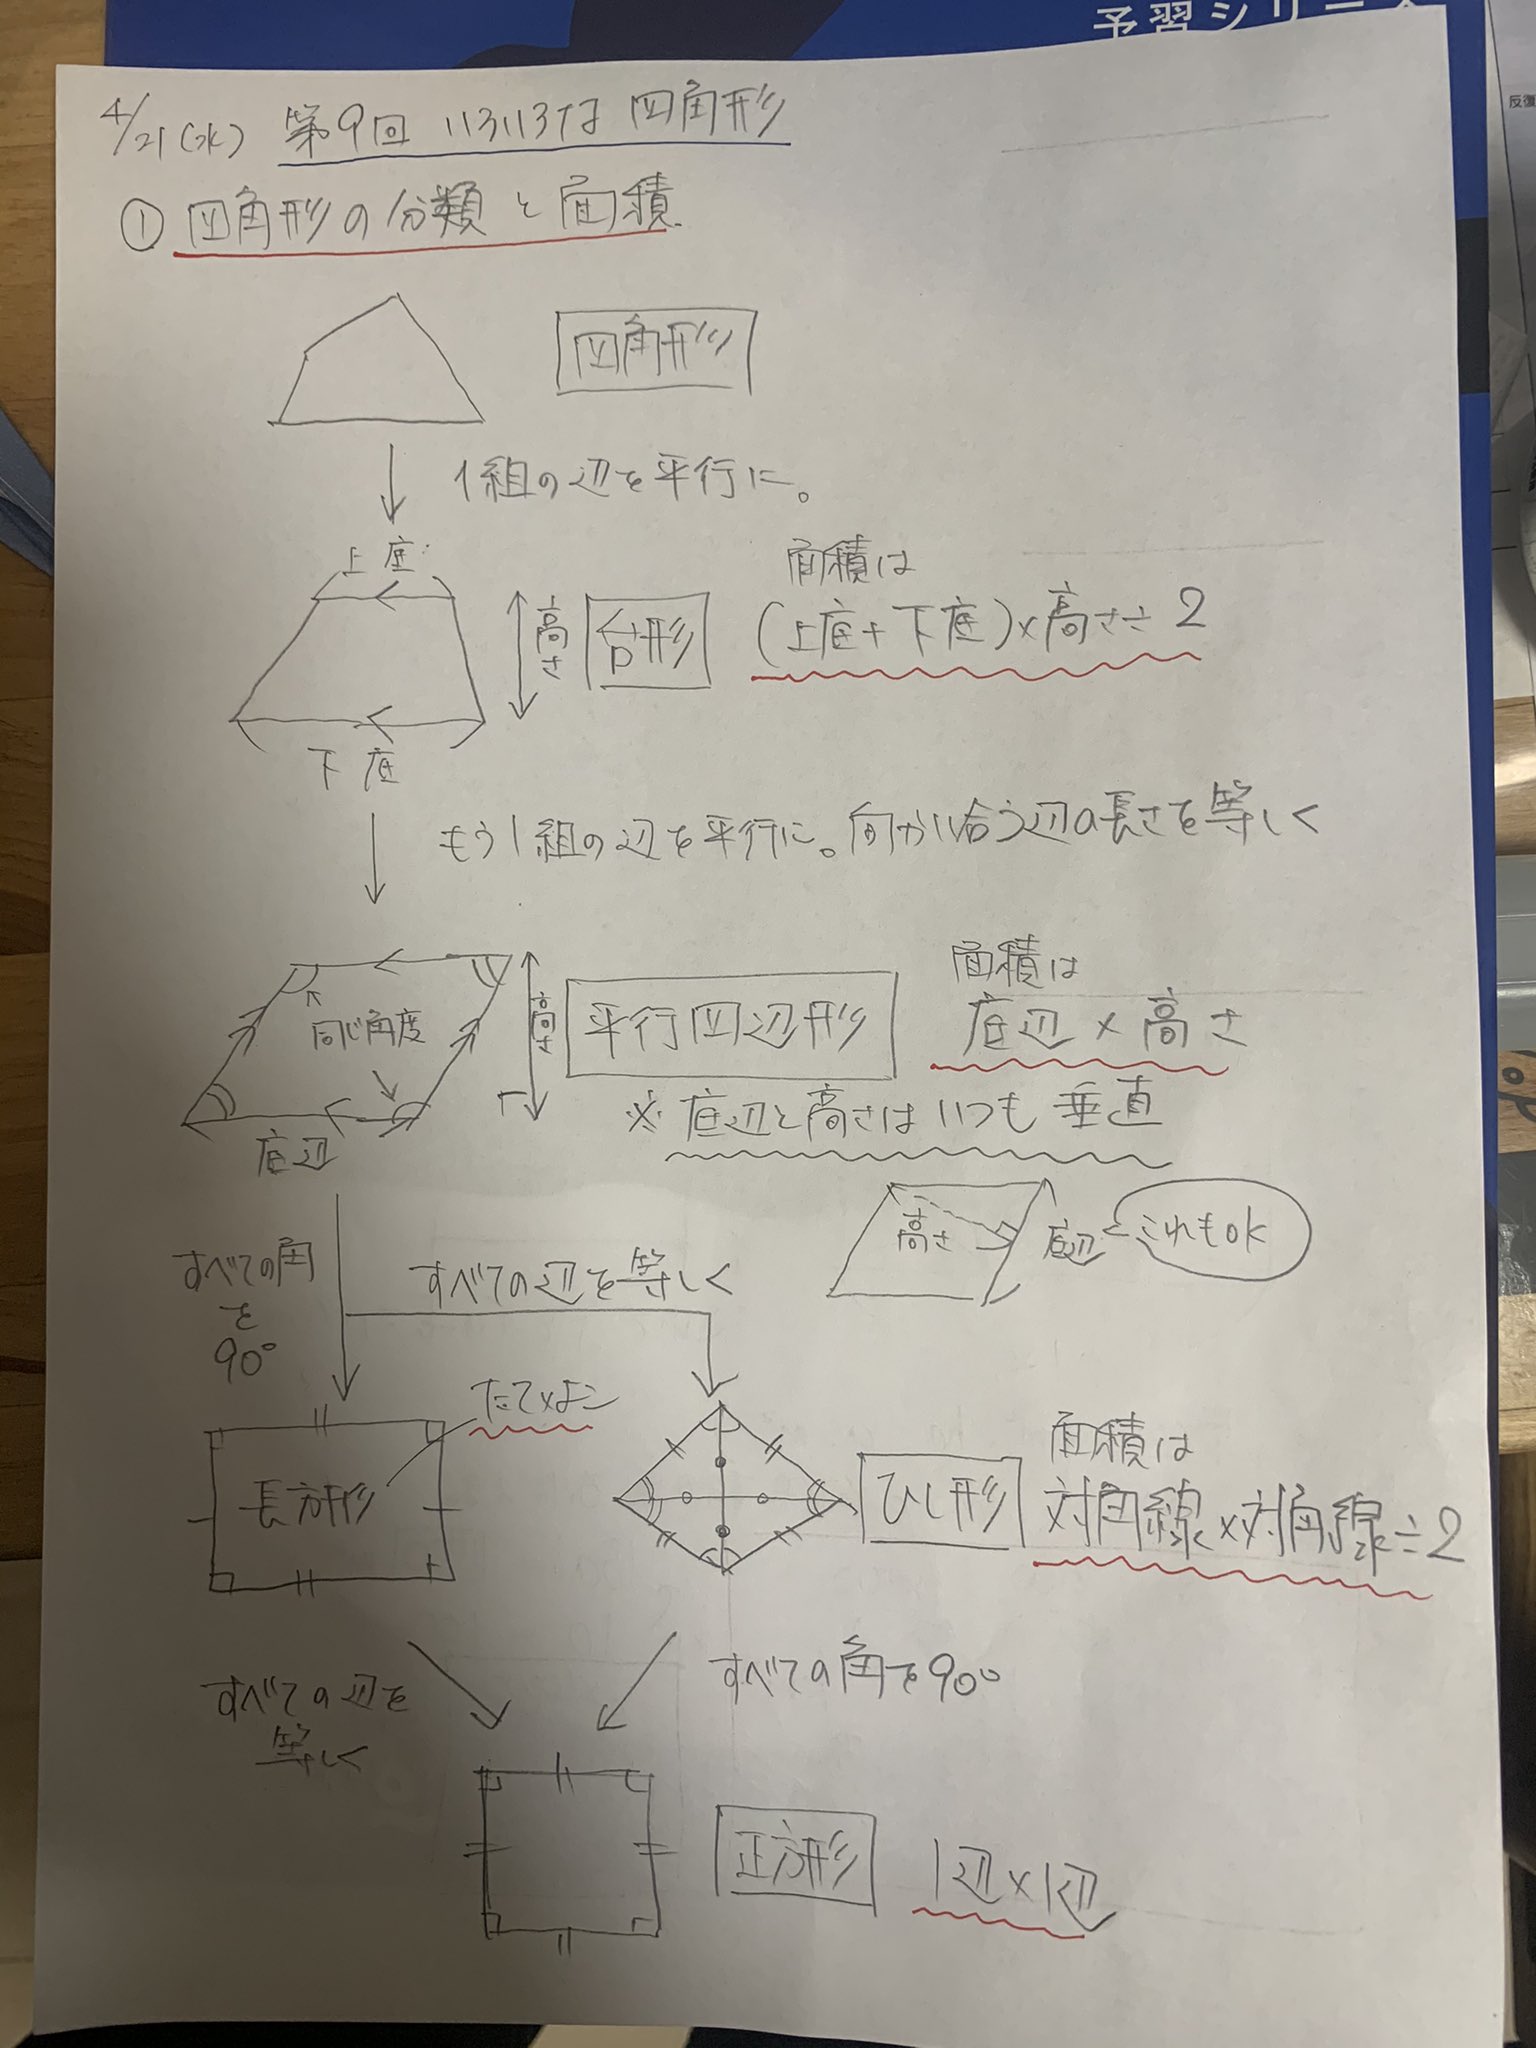 予習シリーズ
反復
4/21(水) 第9回 いろいろな四角形
① 四角形の分類と面積
四角形
1組の辺を平行に。
上底
高さ
台形
面積は
(上底+下底)×高さ÷2
下底
もう1組の辺を平行に。向かい合う辺の長さを等しく
同じ角度
高さ
平行四辺形
面積は
底辺×高さ
底辺
※底辺と高さはいつも垂直
高さ
底辺
これもok
すべての角
を
90°
すべての辺を等しく
たて×よこ
長方形
ひし形
面積は
対角線×対角線÷2
すべての辺を
等しく
すべての角を90°
正方形
1辺×1辺